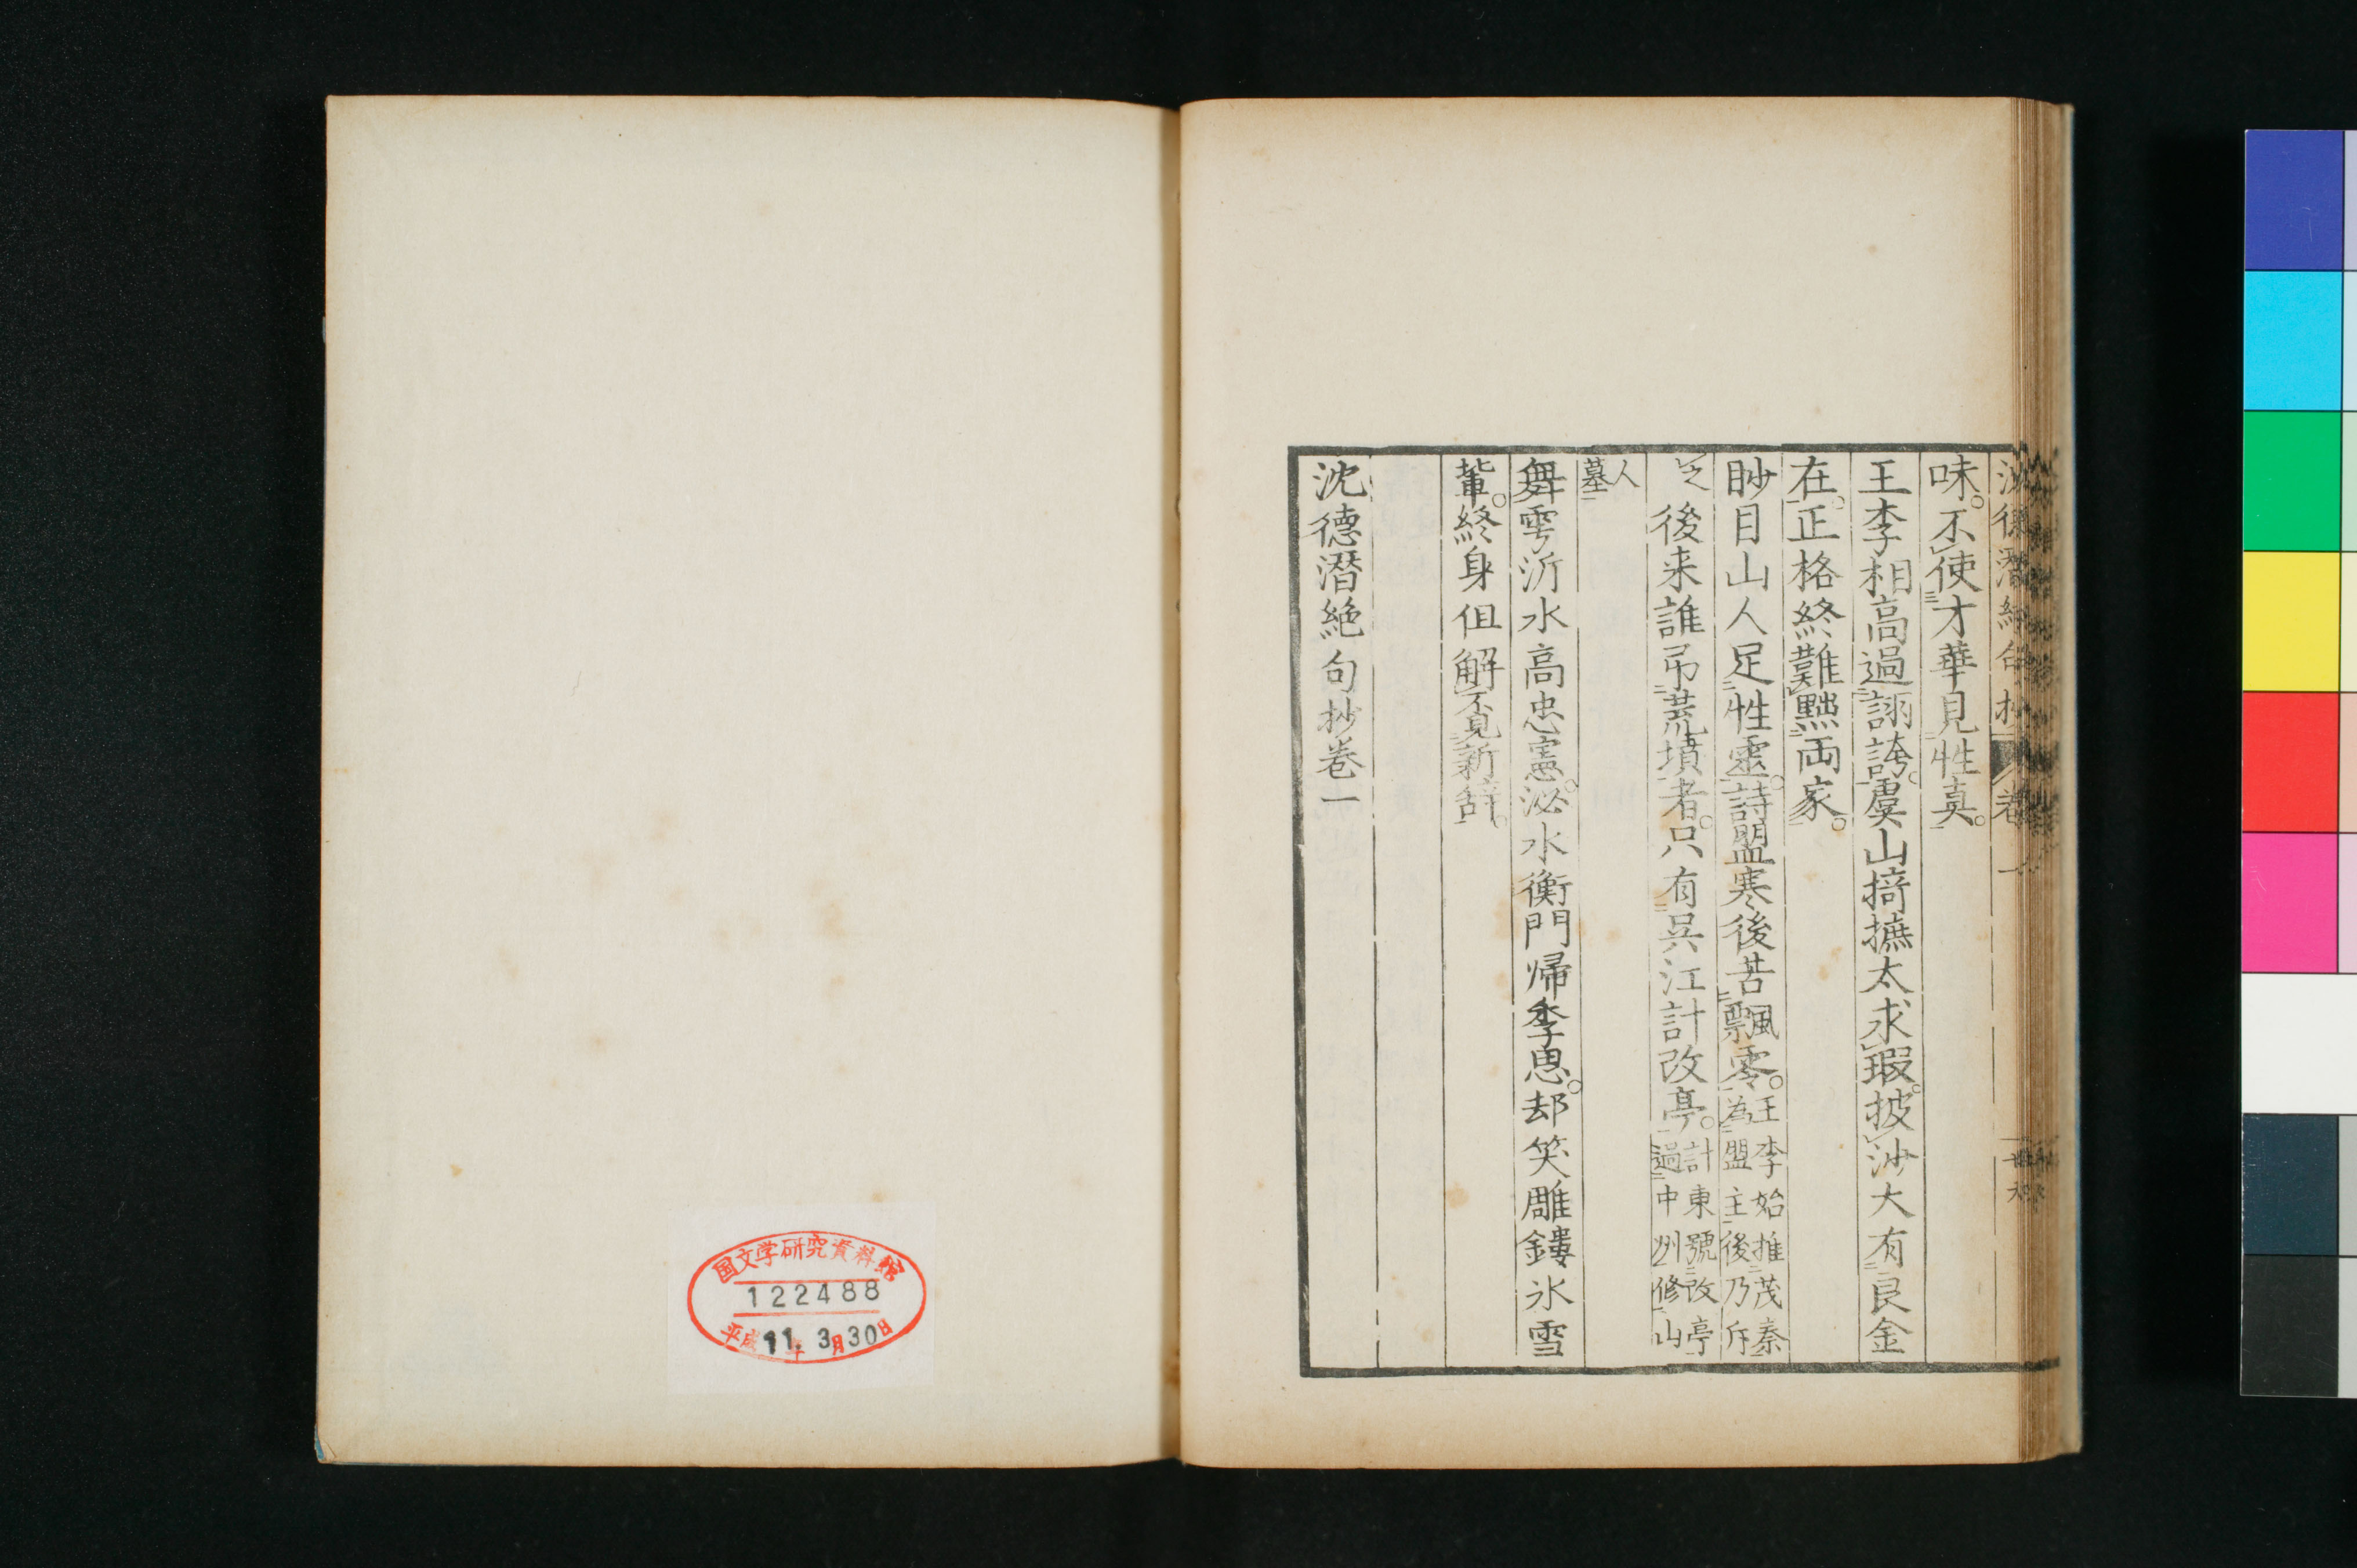 沈德潜絶句抄 巻一
味。不使才華見性真。
王李相高過詡誇。虞山掎摭太求瑕。披沙大有良金
在。正格終難黜両家。
眇目山人足性靈。詩盟寒後苦飄零。王李始推茂秦為盟主後乃斥
之後来誰吊荒墳者。只有呉江計改亭。計東號改亭過中州修山
人墓
舞雩沂水高忠憲。泌水衡門帰季思。却笑雕鏤氷雪
輩。終身但解覓新辞。
沈德潜絶句抄巻一
国文学研究資料館
122488
平成11年3月30日